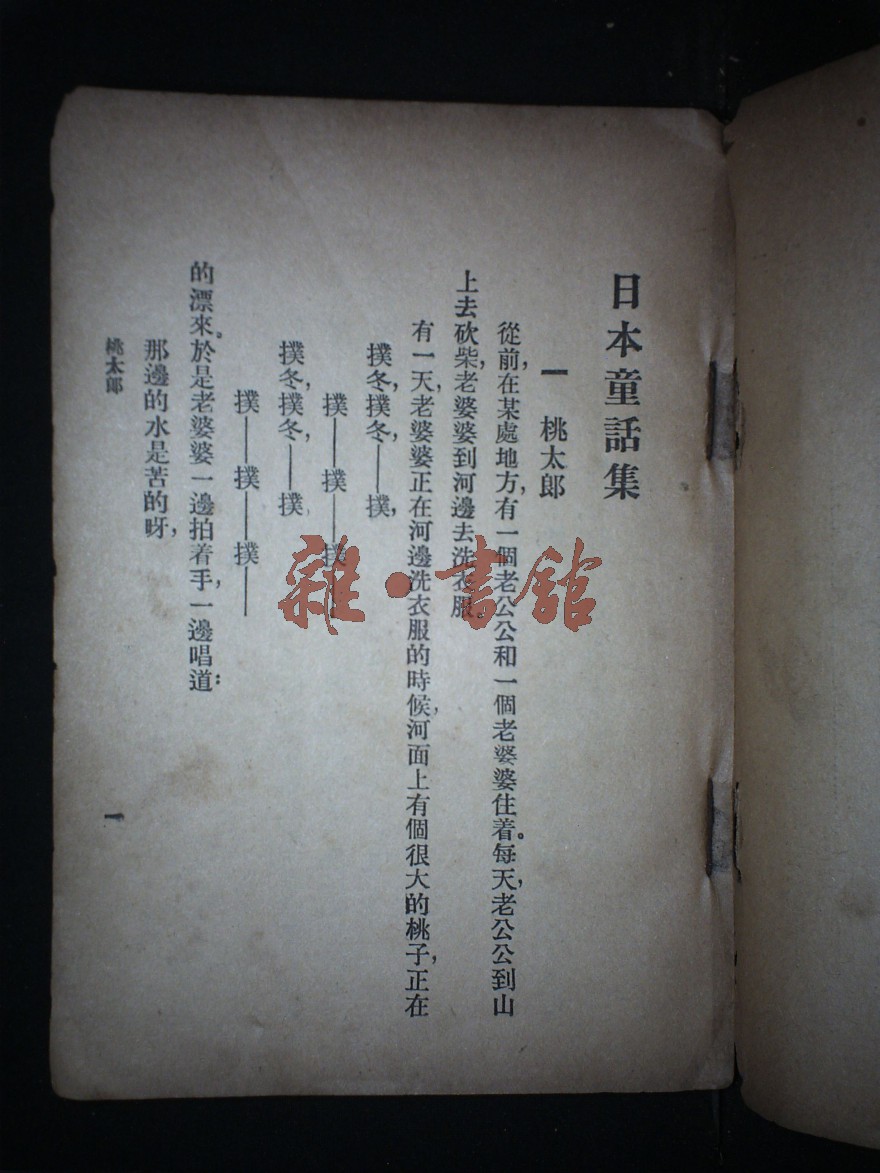 日本童話集
一　桃太郎
從前，在某處地方，有一個老公公和一個老婆婆住着。每天，老公公到山
上去砍柴，老婆婆到河邊去洗衣服。
有一天，老婆婆正在河邊洗衣服的時候，河面上有個很大的桃子，正在
撲冬，撲冬——撲，
撲——撲——撲——
撲冬，撲冬——撲
撲——撲——撲——
的漂來。於是老婆婆一邊拍着手，一邊唱道：
那邊的水是苦的呀，
桃太郎
一
雜·書館